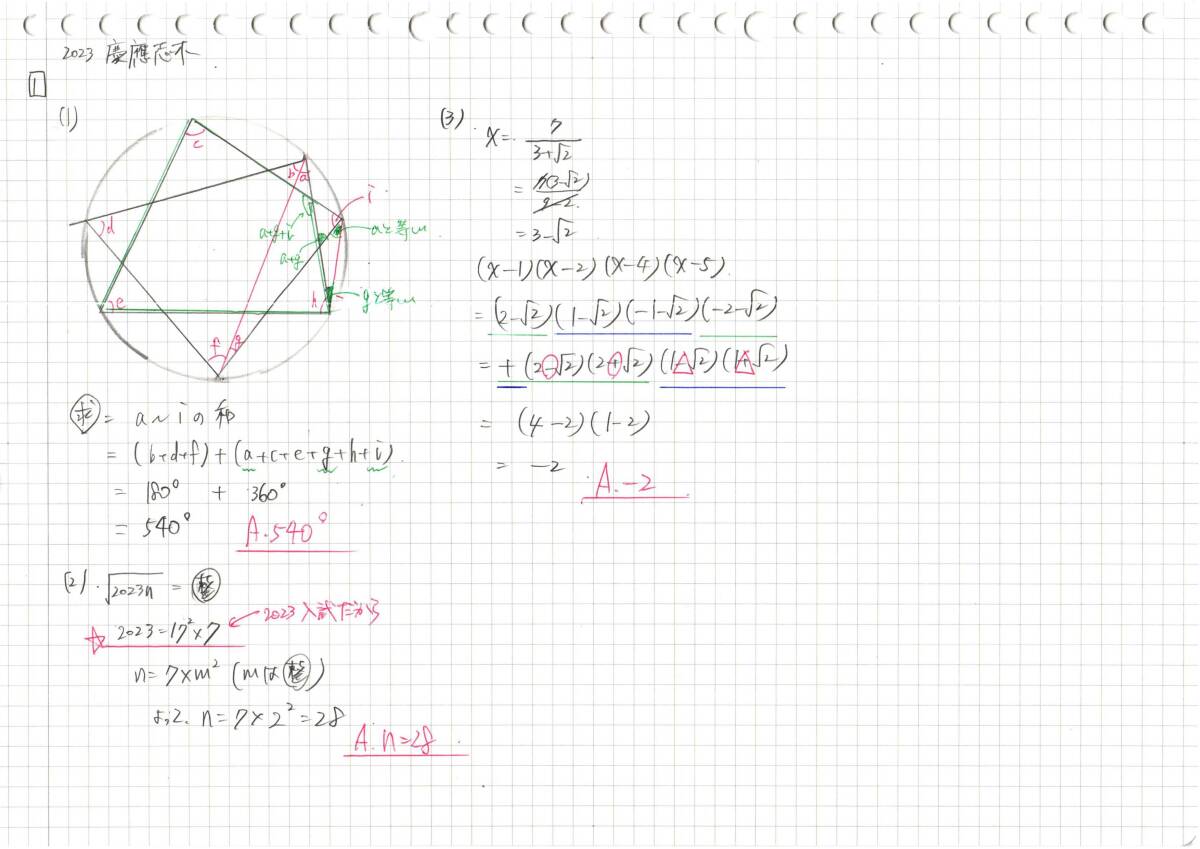 2023 慶應志木
1
(1)
c
b a
i
d
a+g+i
aと等しい
a+g
e
h
gと等しい
f g
求 = a~iの和
= (b+d+f)+(a+c+e+g+h+i)
= 180° + 360°
= 540°
A.540°
(2) √2023n = 整
☆ 2023=17²×7 ← 2023入試だから
n=7×m² (mは整)
よって. n=7×2²=28
A. n=28
(3)
x = 7/(3+√2)
= 7(3-√2)/(9-2)
= 3-√2
(x-1)(x-2)(x-4)(x-5)
= (2-√2)(1-√2)(-1-√2)(-2-√2)
= +(2-√2)(2+√2)(1-√2)(1+√2)
= (4-2)(1-2)
= -2
A.-2